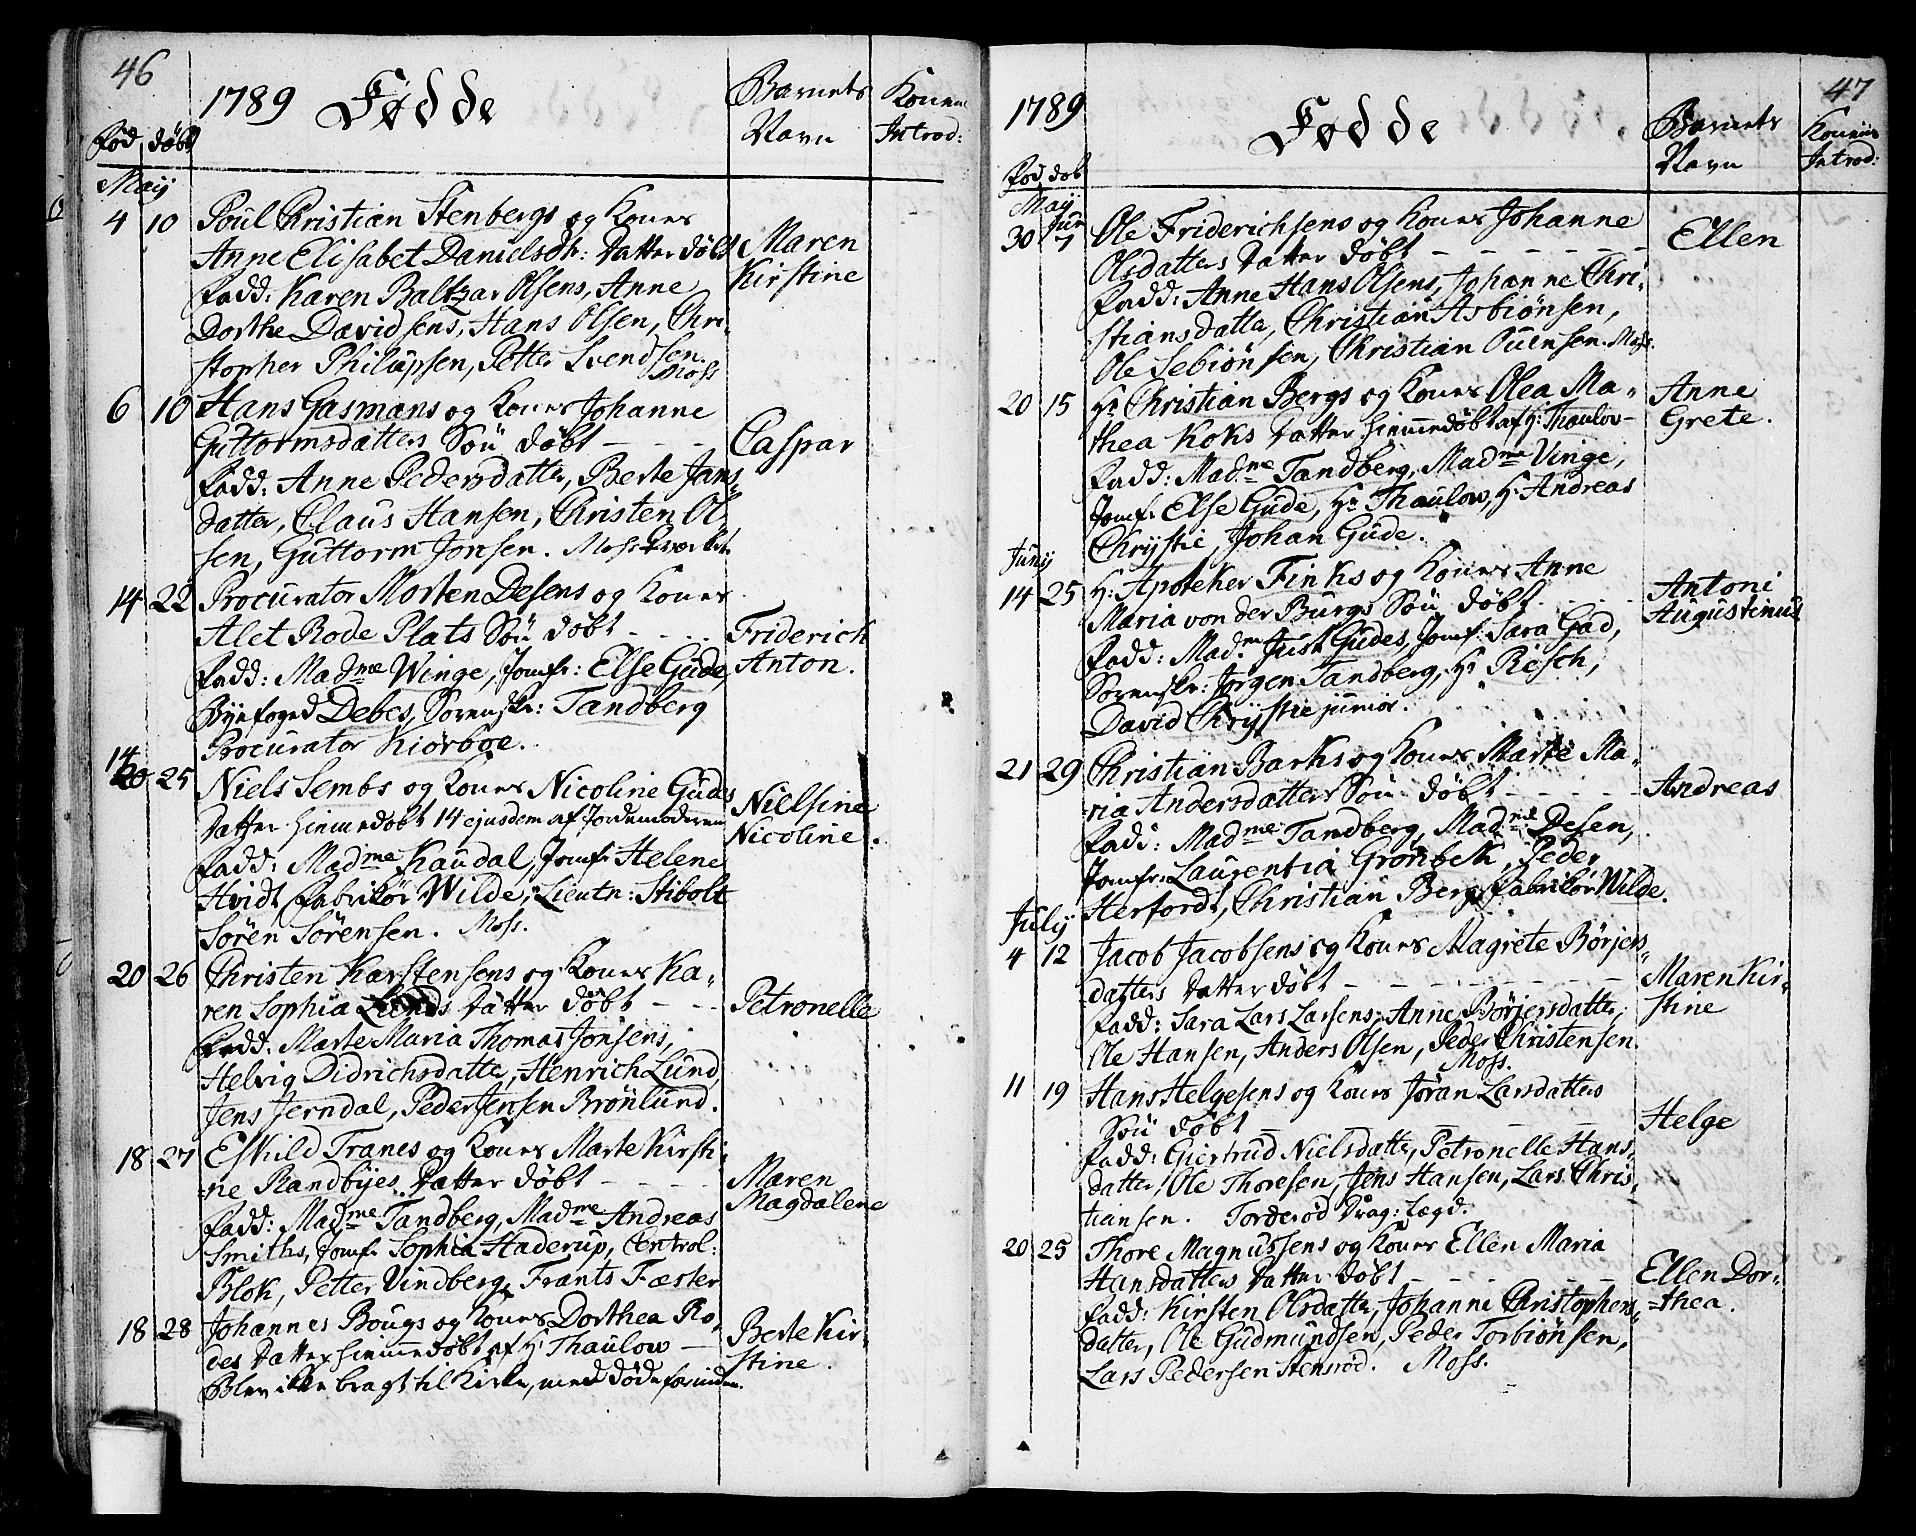 46
1789 Fødde
Barnets Navn
Konens Introd:
Fød døbt
Maij
4 10 Poul Christian Stenbergs og Kones
Anne Elisabet Danielsdtr: Datter døbt
Maren Kirstine
Fadd: Karen Baltzar Olsens, Anne
Dorthe Davidsens, Hans Olsen, Chri-
stopher Philüpsen, Petter Svendsen.
Moss
6 10 Hans Gasmans og Kones Johanne
Guttormsdatters Søn døbt
Caspar
Fadd: Anne Pedersdatter, Berte Jans
datter, Claus Hansen, Christen Ol-
sen, Guttorm Jonsen. Mosseværket
14 22 Procurator Morten Desens og Kones
Alet Rode Plats Søn døbt
Friderich Anton.
Fadd: Madme Winge, Jomfr: Else Gude,
Byefoged Debes, Sorenskr: Tandberg
Procurator Kiorboe.
14
20 25 Niels Sembs og Kones Nicoline Gudes
Datter hiemmedøbt 14 ejusdem af Jordemoderen
Nielsine Nicoline.
Fadd: Madme Kaudal, Jomfr Helene
Hvidt, Fabrikør Wilde, Lieutn: Stibolt
Sören Sörensen. Moss.
20 26 Christen Karstensens og Kones Ka-
ren Sophia Lunds Datter døbt
Petronelle
Fadd: Marte Maria Thomas Jonsens,
Helvig Didrichsdatter, Henrich Lund
Jens Jerndal, Peder Jensen Brönlund.
18 27 Eskild Tranes og Kones Marte Kirsti-
ne Randbyes Datter døbt
Maren Magdalene
Fadd: Madme Tandberg, Madme Andreas
Smiths, Jomfr Sophia Haderup, Control:
Blok, Petter Vindberg, Frants Fæster
18 28 Johannes Bougs og Kones Dorthea Ro-
des Datter hiemmedøbt af Hr Thaulow
Berte Kir-
stine.
Blev ikke bragt til Kirke, med døde forinden.
47
1789 Fødde
Barnets Navn
Konens Introd:
Fød døb
Maij Jun
30 7 Ole Friderichsens og Kones Johanne
Olsdatters Datter døbt
Ellen
Fadd: Anne Hans Olsens, Johanne Chri-
stiansdatter, Christian Asbiönsen,
Ole Sebiönsen, Christian Ouensen. Moss.
20 15 Hr Christian Bergs og Kones Olea Ma-
thea Koks Datter hiemmedøbt af Hr: Thaulow
Anne Grete.
Fadd: Madme Tandberg, Madme Vinge,
Jomfr Else Gude, Hr Thaulow, Hr Andreas
Chrystie, Johan Gude.
Junij
14 25 Hr: Apoteker Finks og Kones Anne
Maria von der Burgs Søn døbt
Antoni Augustinus
Fadd: Madm Just Gudes, Jomf: Sara Gad,
Sorenskr: Jørgen Tandberg, Hr Résch,
David Chrystie junior.
21 29 Christian Barks og Kones Marte Ma-
ria Andersdatters Søn døbt
Andreas
Fadd: Madme Tandberg, Madme Desen,
Jomfr: Laurentia Grönbek, Peder
Herfordt, Christian Berg, Fabrikør Wilde.
Julij
4 12 Jacob Jacobsens og Kones Magrete Börjers
datters Datter døbt
Maren Kir-
stine
Fadd: Sara Lars Larsens, Anne Börjersdatter,
Ole Hansen, Anders Olsen, Peder Christensen
Moss.
11 19 Hans Helgesens og Kones Jöran Larsdatters
Søn døbt
Helge
Fadd: Giertrud Nielsdatter, Petronelle Hans-
datter, Ole Thoresen, Jens Hansen, Lars Chris-
tiansen. Torderød Drag: Lægd.
20 25 Thore Magnussens og Kones Ellen Maria
Hansdatters Datter døbt
Ellen Dor-
=thea.
Fadd: Kirsten Olsdatter, Johanne Christophers-
datter, Ole Gudmundsen, Peder Torbiönsen,
Lars Pedersen Stensröd. Moss.